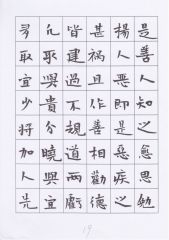 是善人知之愈思勉
揚人惡即是惡疾之
甚禍且作善相勸德
皆建過不規道兩虧
凡取與貴分曉與宜
多取宜少將加人先
19